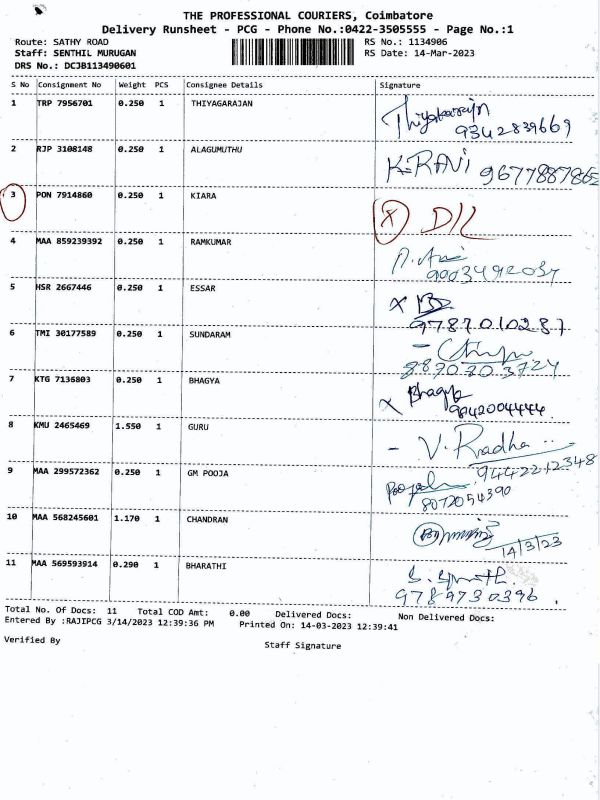 THE PROFESSIONAL COURIERS, Coimbatore
Delivery Runsheet - PCG - Phone No.:0422-3505555 - Page No.:1
Route: SATHY ROAD RS No.: 1134906
Staff: SENTHIL MURUGAN RS Date: 14-Mar-2023
DRS No.: DCJB113490601
S No Consignment No Weight PCS Consignee Details Signature
1 TRP 7956701 0.250 1 THIYAGARAJAN Thiyagarajn
9342839669
2 RJP 3108148 0.250 1 ALAGUMUTHU K.RAVI 9677887862
3 PON 7914860 0.250 1 KIARA X D/L
4 MAA 859239392 0.250 1 RAMKUMAR
9003492037
5 HSR 2667446 0.250 1 ESSAR X
9787010287
6 TMI 30177589 0.250 1 SUNDARAM -
8870203724
7 KTG 7136803 0.250 1 BHAGYA X Bhagya
9842004444.
8 KMU 2465469 1.550 1 GURU - V. Radha ..
9442212348
9 MAA 299572362 0.250 1 GM POOJA
8072054390
10 MAA 568245601 1.170 1 CHANDRAN
14/3/23
11 MAA 569593914 0.290 1 BHARATHI
9789730396.
Total No. Of Docs: 11 Total COD Amt: 0.00 Delivered Docs: Non Delivered Docs:
Entered By :RAJIPCG 3/14/2023 12:39:36 PM Printed On: 14-03-2023 12:39:41
Verified By Staff Signature